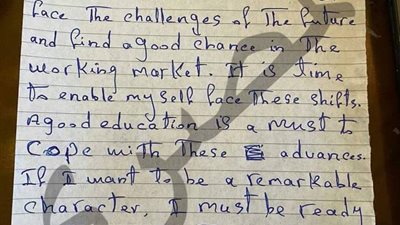 face The challenges of The future
and find a good chance in The
working market. It is time
to enable my self face These shifts.
A good education is a must to
Cope with These advances.
If I want to be a remarkable
character, I must be ready